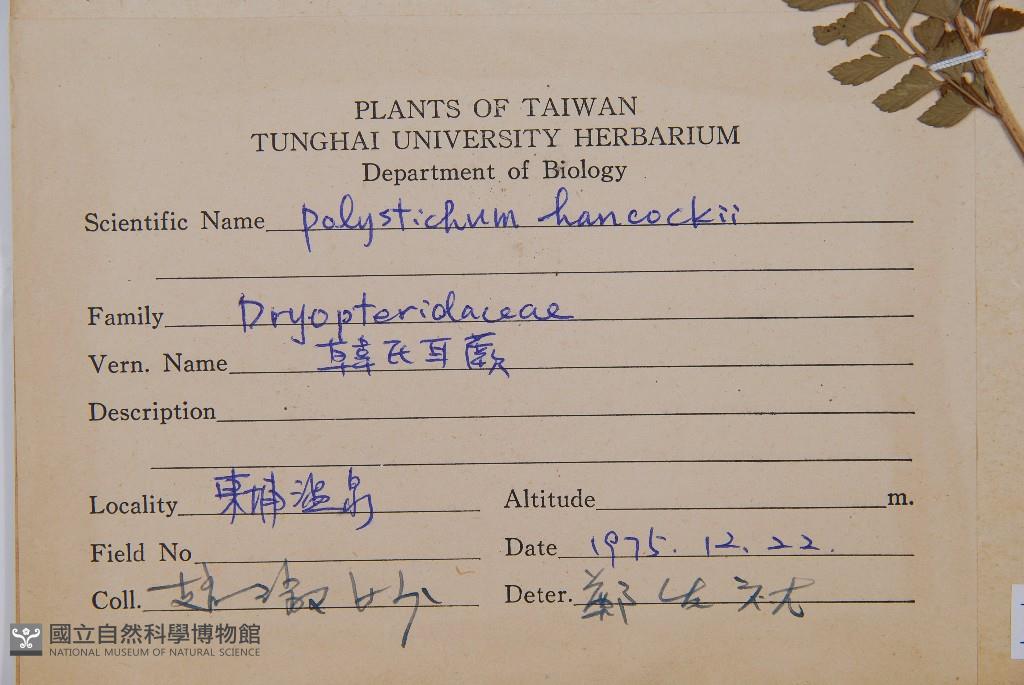 PLANTS OF TAIWAN
TUNGHAI UNIVERSITY HERBARIUM
Department of Biology
Scientific Name polystichum hancockii
Family Dryopteridaceae
Vern. Name 韓氏耳蕨
Description
Locality 東埔溫泉
Altitude m.
Field No
Date 1975. 12. 22.
Coll. 趙
Deter. 鄭
國立自然科學博物館
NATIONAL MUSEUM OF NATURAL SCIENCE